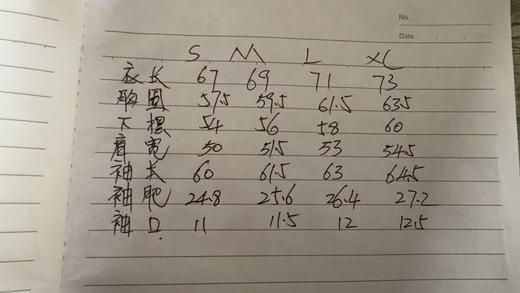 No.
Date
S M L XL
衣长 67 69 71 73
胸围 57.5 59.5 61.5 63.5
下摆 54 56 58 60
肩宽 50 51.5 53 54.5
袖长 60 61.5 63 64.5
袖肥 24.8 25.6 26.4 27.2
袖口 11 11.5 12 12.5